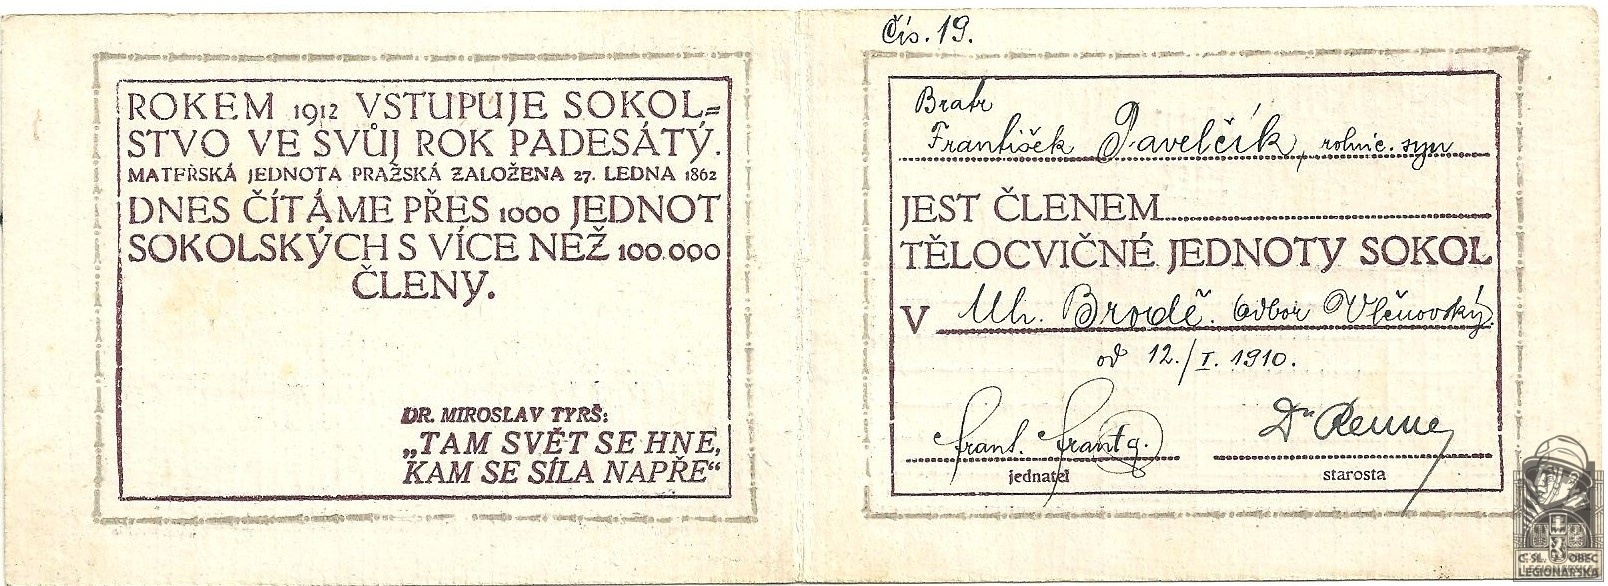 ROKEM 1912 VSTUPUJE SOKOL=
STVO VE SVŮJ ROK PADESÁTÝ.
MATEŘSKÁ JEDNOTA PRAŽSKÁ ZALOŽENA 27. LEDNA 1862
DNES ČÍTÁME PŘES 1000 JEDNOT
SOKOLSKÝCH S VÍCE NEŽ 100.000
ČLENY.
DR. MIROSLAV TYRŠ:
„TAM SVĚT SE HNE,
KAM SE SÍLA NAPŘE“
Čís. 19.
Bratr
František Pavelčík, rolnic. syn
JEST ČLENEM
TĚLOCVIČNÉ JEDNOTY SOKOL
V Uh. Brodě. odbor Vlčnovský.
od 12./I. 1910.
Frant.
Dr
jednatel
starosta
Č. SL. OBEC
LEGIONÁŘSKÁ